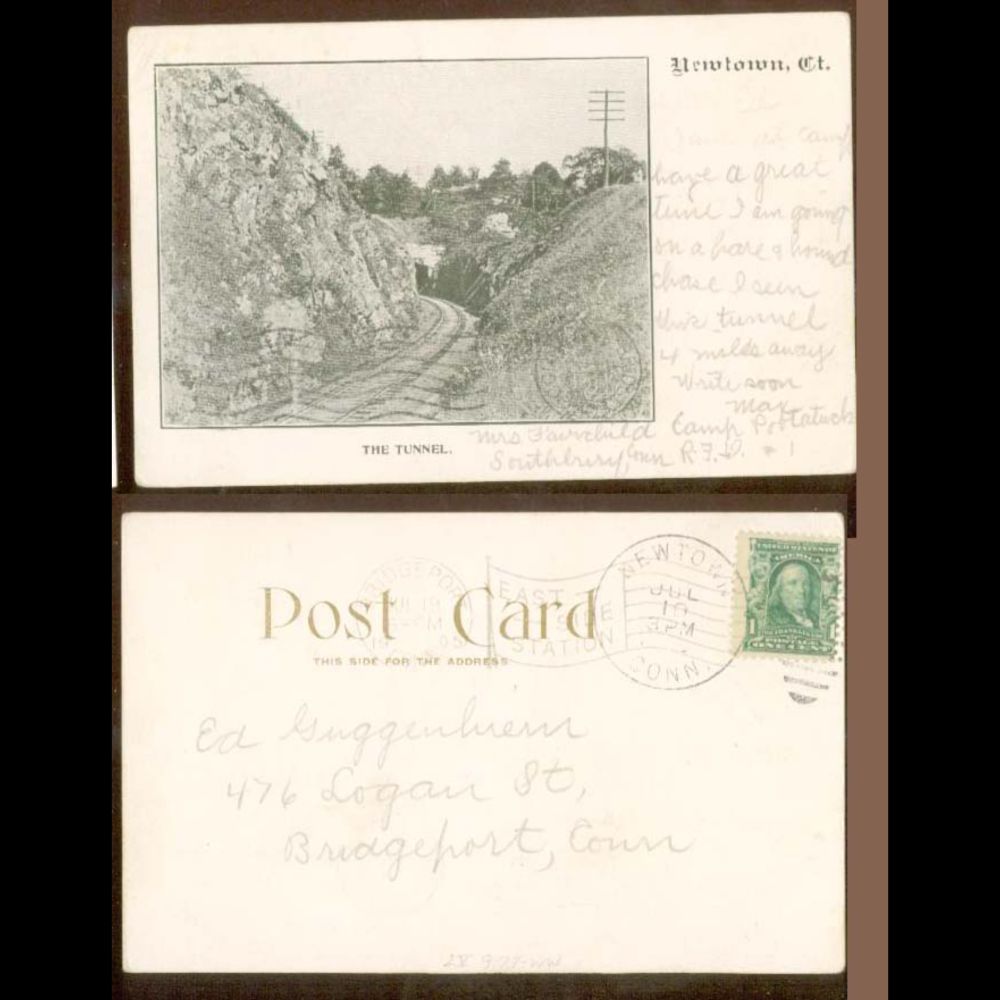 Newtown, Ct.
camp
have a great
time I am going
on a hare & hound
chase I seen
this tunnel
4 miles away
Write soon
Max
Camp Pootatuck
THE TUNNEL.
Mrs Fairchild
Southbury, Conn R.F.D. #1
Post Card
THIS SIDE FOR THE ADDRESS
BRIDGEPORT
EAST
SIDE
STATION
NEWTOWN
JUL
18
3 PM
CONN.
UNITED STATES OF
AMERICA
1 1
POSTAGE
ONE CENT
Ed Guggenheim
476 Logan St,
Bridgeport, Conn